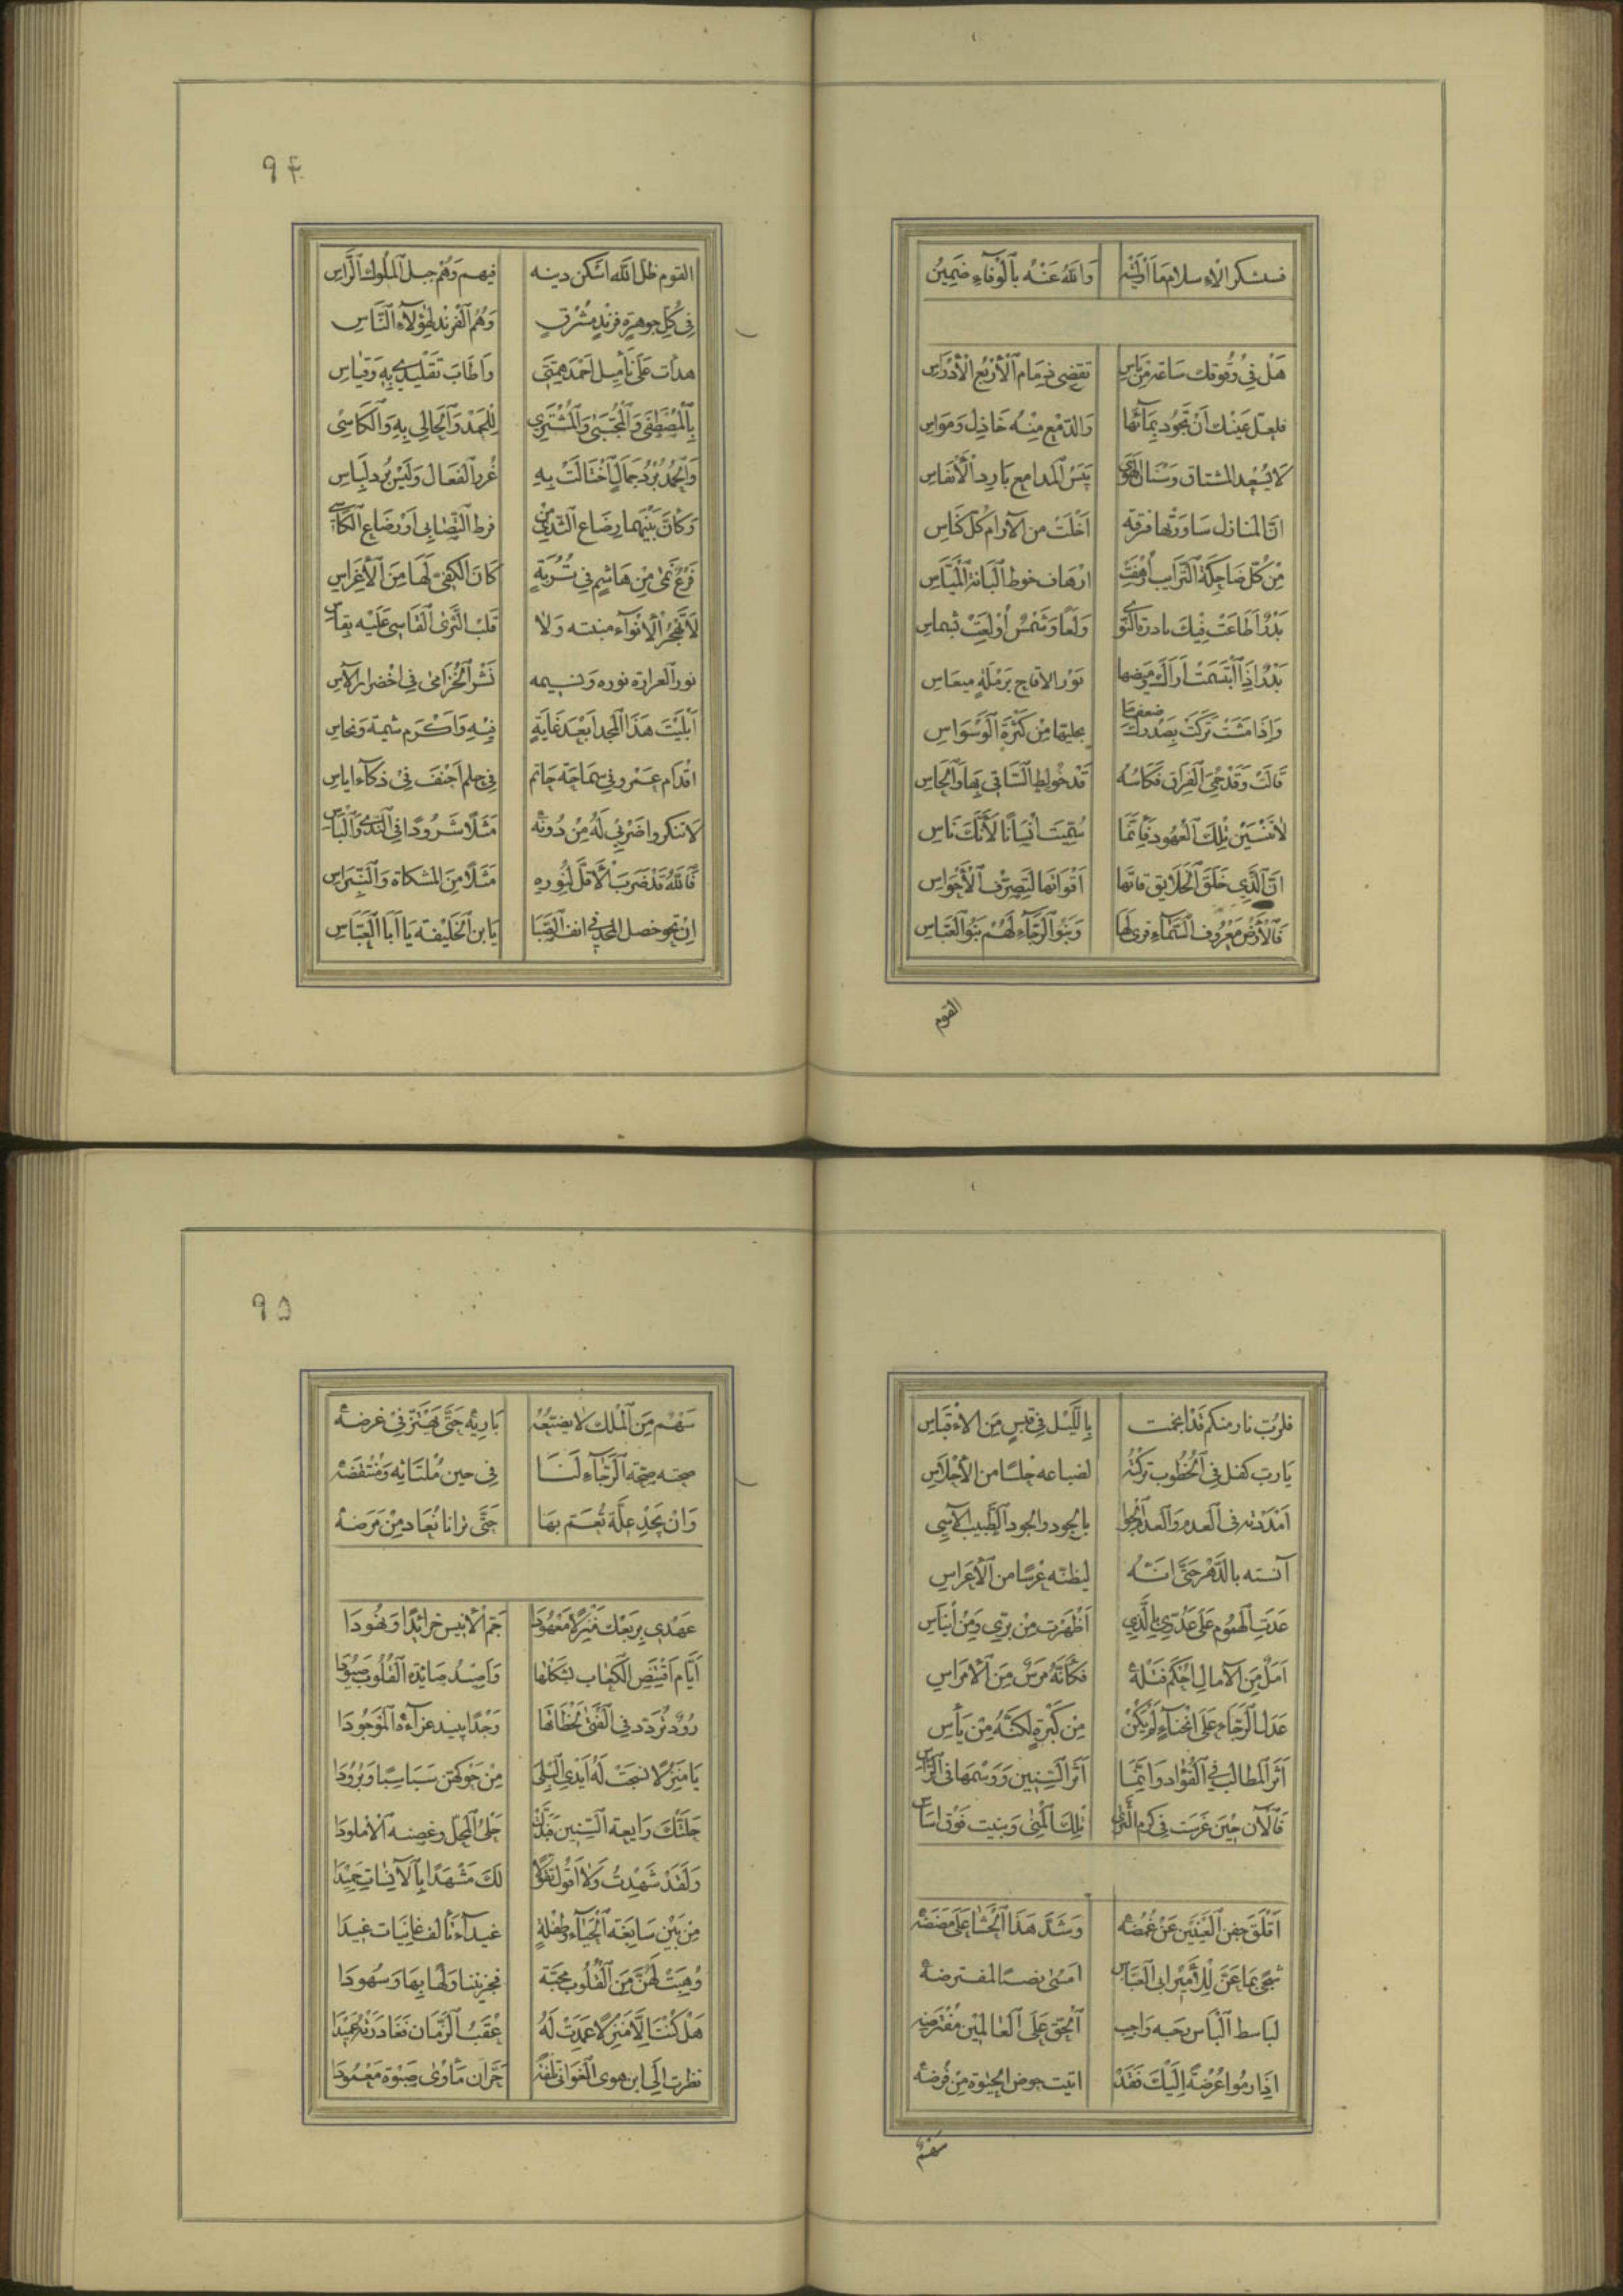 فسيشكر الاسلام ما اوليته وَاللهُ عَنْهُ بِالْوَفَاءِ ضَمِينُ
هَلْ فِي وُقُوفِكَ سَاعَةً مِنْ بَاسِ تقضى ذِمَام الْأَرْبُعِ الْأَدْرَاسِ
فلعلّ عَيْنَكَ اَنْ تَجُود بِمَائهَا وَالدّمْع مِنْهُ خَاذِل وَمُوَاسِ
لَا يُسْعِد المشتاق وَسْنَان الْهَوَى يَبَسُ الْمَدامِع بَارِد الْأَنْفَاسِ
انّ المنازل سَاوَرَتْها فرقة اَخْلَتْ من الآرام كُلّ كَنَاسِ
مِنْ كُلّ ضَاحِكَةِ التَرَايب أُرْهِفَتْ ارْهَاف خوط الْبَانَة الْمَيّاسِ
بَدْرٌ اَطَاعَتْ فِيكَ بادرة النَّوَى وَلَعًا وَشَمْسٌ أُولِعَتْ بشماسِ
بَدْرٌ اِذَا ابْتَسَمَتْ اَرَاكَ وَمِيضها نَوْر الاقاح بِرَمْلَةٍ ميعَاسِ
وَاِذَا مَشَتْ تَرَكَتْ بِصَدْرِكَ ضعف ما بحليها مِنْ كَثْرَةِ الْوَسْوَاسِ
قَالَتْ وَقَدْ حُمَّ الْفِرَاق فَكَاسُه قَدْ خُولِطَ السّاقى بِهَا وَالْحَاسِ
لا تَنْسَيَنْ تِلْكَ الْعُهُود فَإِنَّمَا سُمِّيتَ اِنْسَانًا لِأَنَّكَ نَاسِ
انّ الَّذِي خَلَقَ الْخَلَايق قاتها اَقْوَاتَها لِتَصَرُّف الْأَحْرَاسِ
فَالْأَرْضُ مَعْرُوف السَّمَاءِ قِرى لَهَا وَبَنُو الرَّجَاءِ لَهُمْ بَنُو الْعَبَّاسِ
القوم
٩٤
القوم ظلّ اللّه اسْكن دينه فيهم وَهُمْ جبل الْمُلُوك الرَّاسِ
فِي كُلِّ جوهرة فرند مُشْرق وَهُمُ الْفرند لِهؤلاءِ النَّاسِ
هدأت عَلَى تأميل اَحْمَد هِمَّتي وَاَطَافَ تقليدى بِهِ وَقِيَاسِ
بِالْمُصْطَفى وَالْمُجْتَبَى وَالْمُشْتَرِي لِلْحَمْد وَالْحَالِي بِهِ وَالْكَاسِى
وَالْحَمْد بُرْدُ جَمَالٍ اخْتَالَتْ بِهِ غُرر الْفَعَال وَلَيْسَ بُرد لِبَاسِ
وَكَأَنَّ بَيْنَهما رِضَاع الثَّدْي مِنْ فرط التَّصَابي اَوْ رَضَاع الْكَاسِ
فَرْعٌ نَمَى مِنْ هَاشِمٍ فِي تُرْبَةٍ كَانَ الْكَفيّ لَهَا مِنَ الْأَغْرَاسِ
لَا تَهْجُرُ الْأَنْوَآءُ منبته وَلا قَلْبُ الثّرى الْقَاسِى عَلَيْهِ بقاسِ
نور العرارة نوره وَنسِيمه نَشْر الْخُزَامى فِى اخْضِرَار الْآسِ
اَبْلَيْتَ هَذَا الْمَجد اَبْعَد غَايَةٍ فِيهِ وَاَكْرَم شيمة وَنحاسِ
اقْدَام عَمْرو فِي سَمَاحَة حَاتم فِي حلم اَحْنَفَ فِى ذَكاء اياسِ
لَا تنكروا ضَرْبِي لَهُ مِنْ دُونه مَثَلًا شَرُودًا فِي النَّدَى وَالْبَاسِ
فَاللهُ قَدْ ضَرَبَ الْأَقَلَّ لِنُورِهِ مَثَلًا مِنَ الْمشكاة وَالنّبراسِ
اِنْ تحو خصل المجد فى انف الصِّبَا يَا بن الْخَلِيفَة يَا اَبَا الْعَبّاسِ
فلربّ نار منكم قَدْ انتجت بِاللَّيْل فِي قَبَسٍ مِنَ الاقبَاسِ
يَا رب كفل فِي الْخُطُوب تركْتُه لصعابه حِلسًا من الْأَحْلَاسِ
اَمْدَدْته فى العدم وَالعدم الْجوا بالجود والجود الطَّبِيب الآسِى
آنسته بالدَّهْر حَتَّى انّه ليظنّه عُرْسًا من الْأَعْرَاسِ
عَدَتِ الْهُمُوم عَلَى عَدُوّي بِالَّذِي اَظْهَرْت مِنْ برّي وَمِنْ اِيناسِ
اَمَلٌ مِنَ الآمال اُحْكِمَ فَتْلُهُ فَكَأَنَّهُ مَرَسٌ مِنَ الْأَمْرَاسِ
عَدَل الرَّجَاء عَلَى انحناءٍ لَمْ يَكُنْ مِنْ كَبْرَةٍ لكِنَّهُ مِنْ يَأْسِ
اَثَر المطالب فِي الْفُؤَاد وَاِنَّمَا اَثَر السِّنِين وَوَسْمها فى الرَّاسِ
فَالْآن حِيْنَ غَرَسْت فِي كرم الثَّرى تِلْكَ الْمُنى وَبنيت فَوْق اسَاسِ
اَقْلَقَ جفن الْعَيْنَيْن عَنْ غُمُضه وَشَدَّ هَذَا الْحَشَا عَلَى مَضَضه
شَجًى بِمَا عَنَّ لِلْأَمِيْر ابى الْعَبّاس امسَى نصبًا لمفترضه
لبَاسط الْبَاس حبه وَاجب الْحقّ عَلَى الْعَالمين مُفْتَرضه
اِذَا رموا عُرْضَةً اِلَيْكَ فَقَدْ اتيت حوض الحيوة مِنْ فُرضه
سهم
٩٥
سَهْم مِنَ الْمُلك لَا يضيّعُه بَارِيه حَتَّى يَهْتزّ فِي غرضه
صحّته صِحّة الرَّجَاءِ لَنَا فِي حين مُلْتَاثه وَمُنْتَقَضه
وَاِنْ يَجِدْ عِلَّة نُعَم بهَا حَتَّى ترانا نُعَاد مِنْ مَرَضه
عَهْدِي بِرَبْعِك مَنْزِلًا مَعْهُودَا جَمّ الْأَنِيس خَرَائِدًا وَنُهُودَا
اَيَّام اَقْتَنِص الْكَعَاب لشكلها وَاَصِيْدُ صَائِدة الْقُلُوب صُيُودَا
رُودٌ تُردّد فِي الْفَتى لَحْظَاتُهَا وَجْدًا يبيد عزآءه الْمَوْجُودَا
يَا مَنْزِلًا نسجَتْ لَهُ اَيْدِى الْبِلَى مِنْ حَوْكهنّ سَبَاسِبًا وَبُرُودَا
حَلَتْكَ رَايعة السّنين فبَدَّلَتْ حَلْىُ الْمحل وغصنه الأملودَا
وَلَقَدْ شَهِدْتُ وَلَا اَقُول تَقَوّلًا لَكَ مَشْهَدًا بِالْآنِسَات حَمِيْدَا
مِنْ بَيْن سَابِغة الْحَيَاءِ وَطفلةٍ غيدآء تألف غَانِيَات غيدَا
وُهِبَتْ لَهُنَّ مِنَ الْقُلُوب مَحَبَّة فجزيننا ولهًا بِهَا وَسُهودَا
هَلْ كُنْتَ اِلَّا مَنْزِلًا عَدَتْ لَهُ عُقَبُ الزَّمَان فَغَادَرَتْهُ عَمِيْدَا
نظرت اِلَى ابن هوى الْغَوَانى تلفه حَرّان مأوى صَبْوة مَعْمُودَا